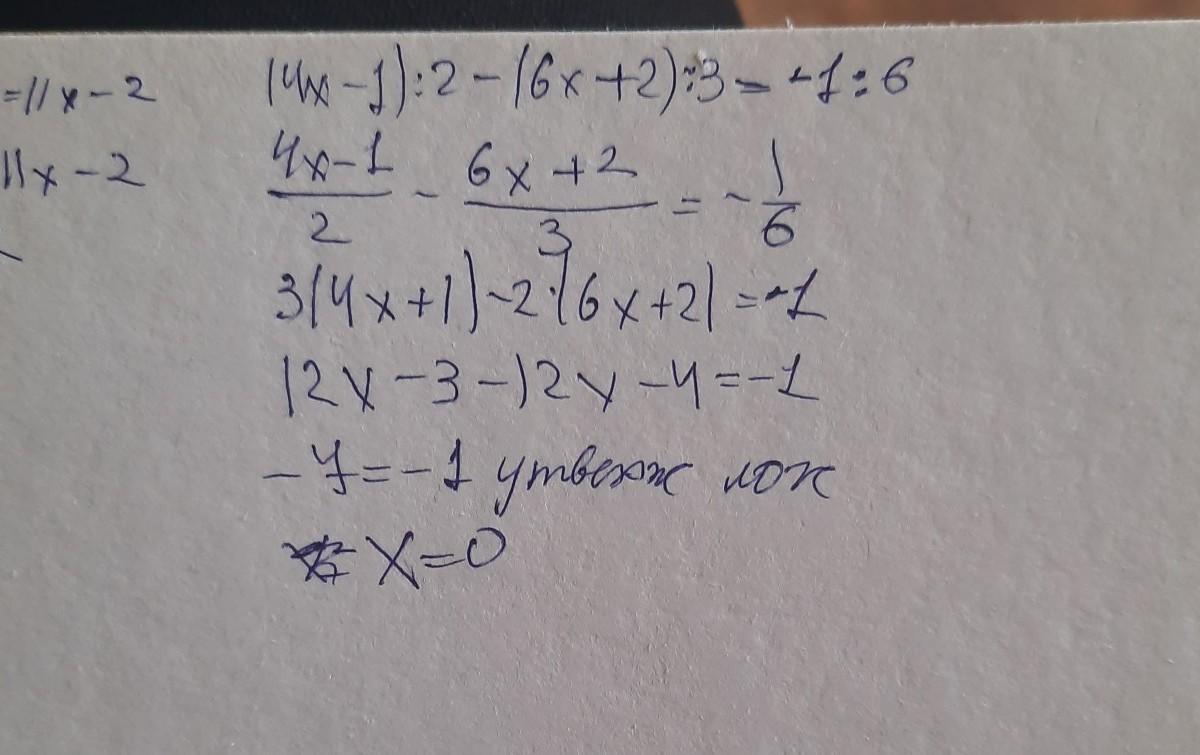 =11x-2
11x-2
(4x-1):2-(6x+2):3=-1:6
4x-1/2 - 6x+2/3 = -1/6
3(4x+1)-2·(6x+2)=-1
12x-3-12x-4=-1
-7=-1 утверж лож
x=0